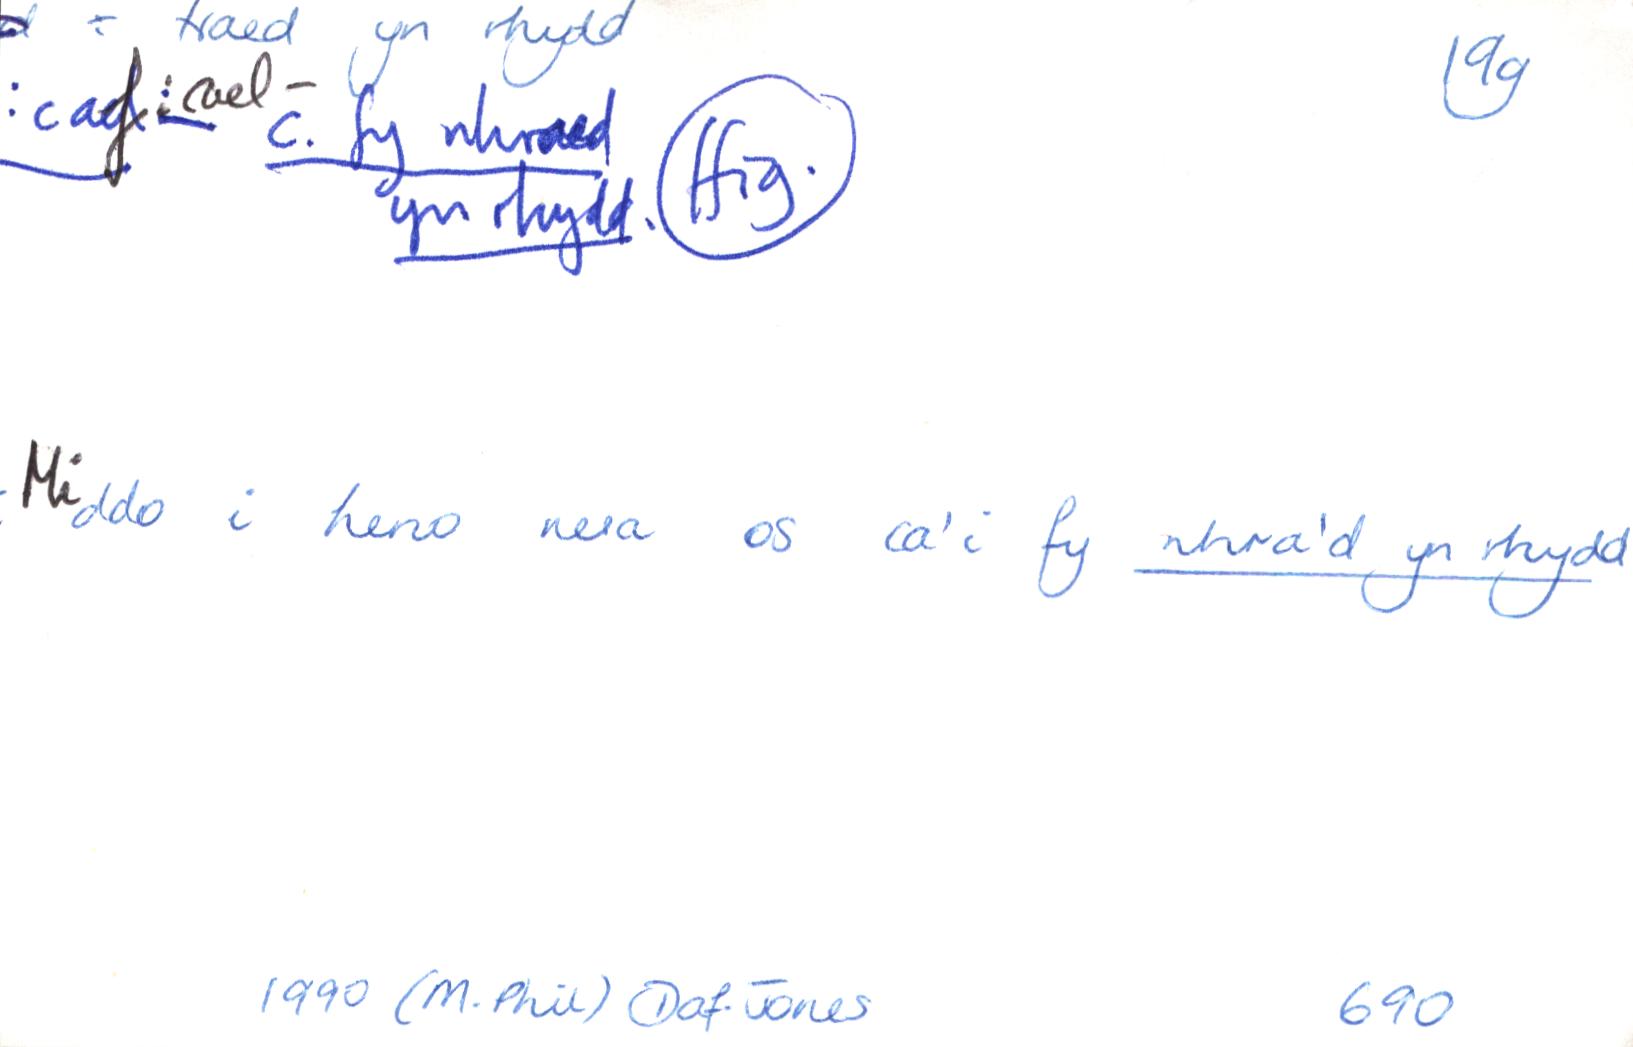 d - traed yn rhydd 19g
: caf : cael - c. fy nhraed
yn rhydd. ffig.
: Mi ddo i heno nesa os ca'i fy nhra'd yn rhydd
1990 (M.Phil) Daf. Jones 690